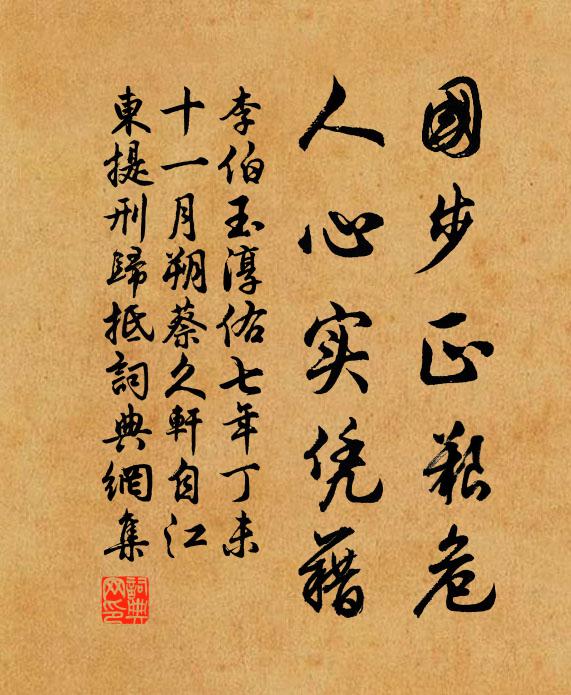 國步正艱危
人心实凭藉
李伯玉淳佑七年丁未
十一月朔蔡久軒自江
東提刑歸抵詞典網集
詞典
网印